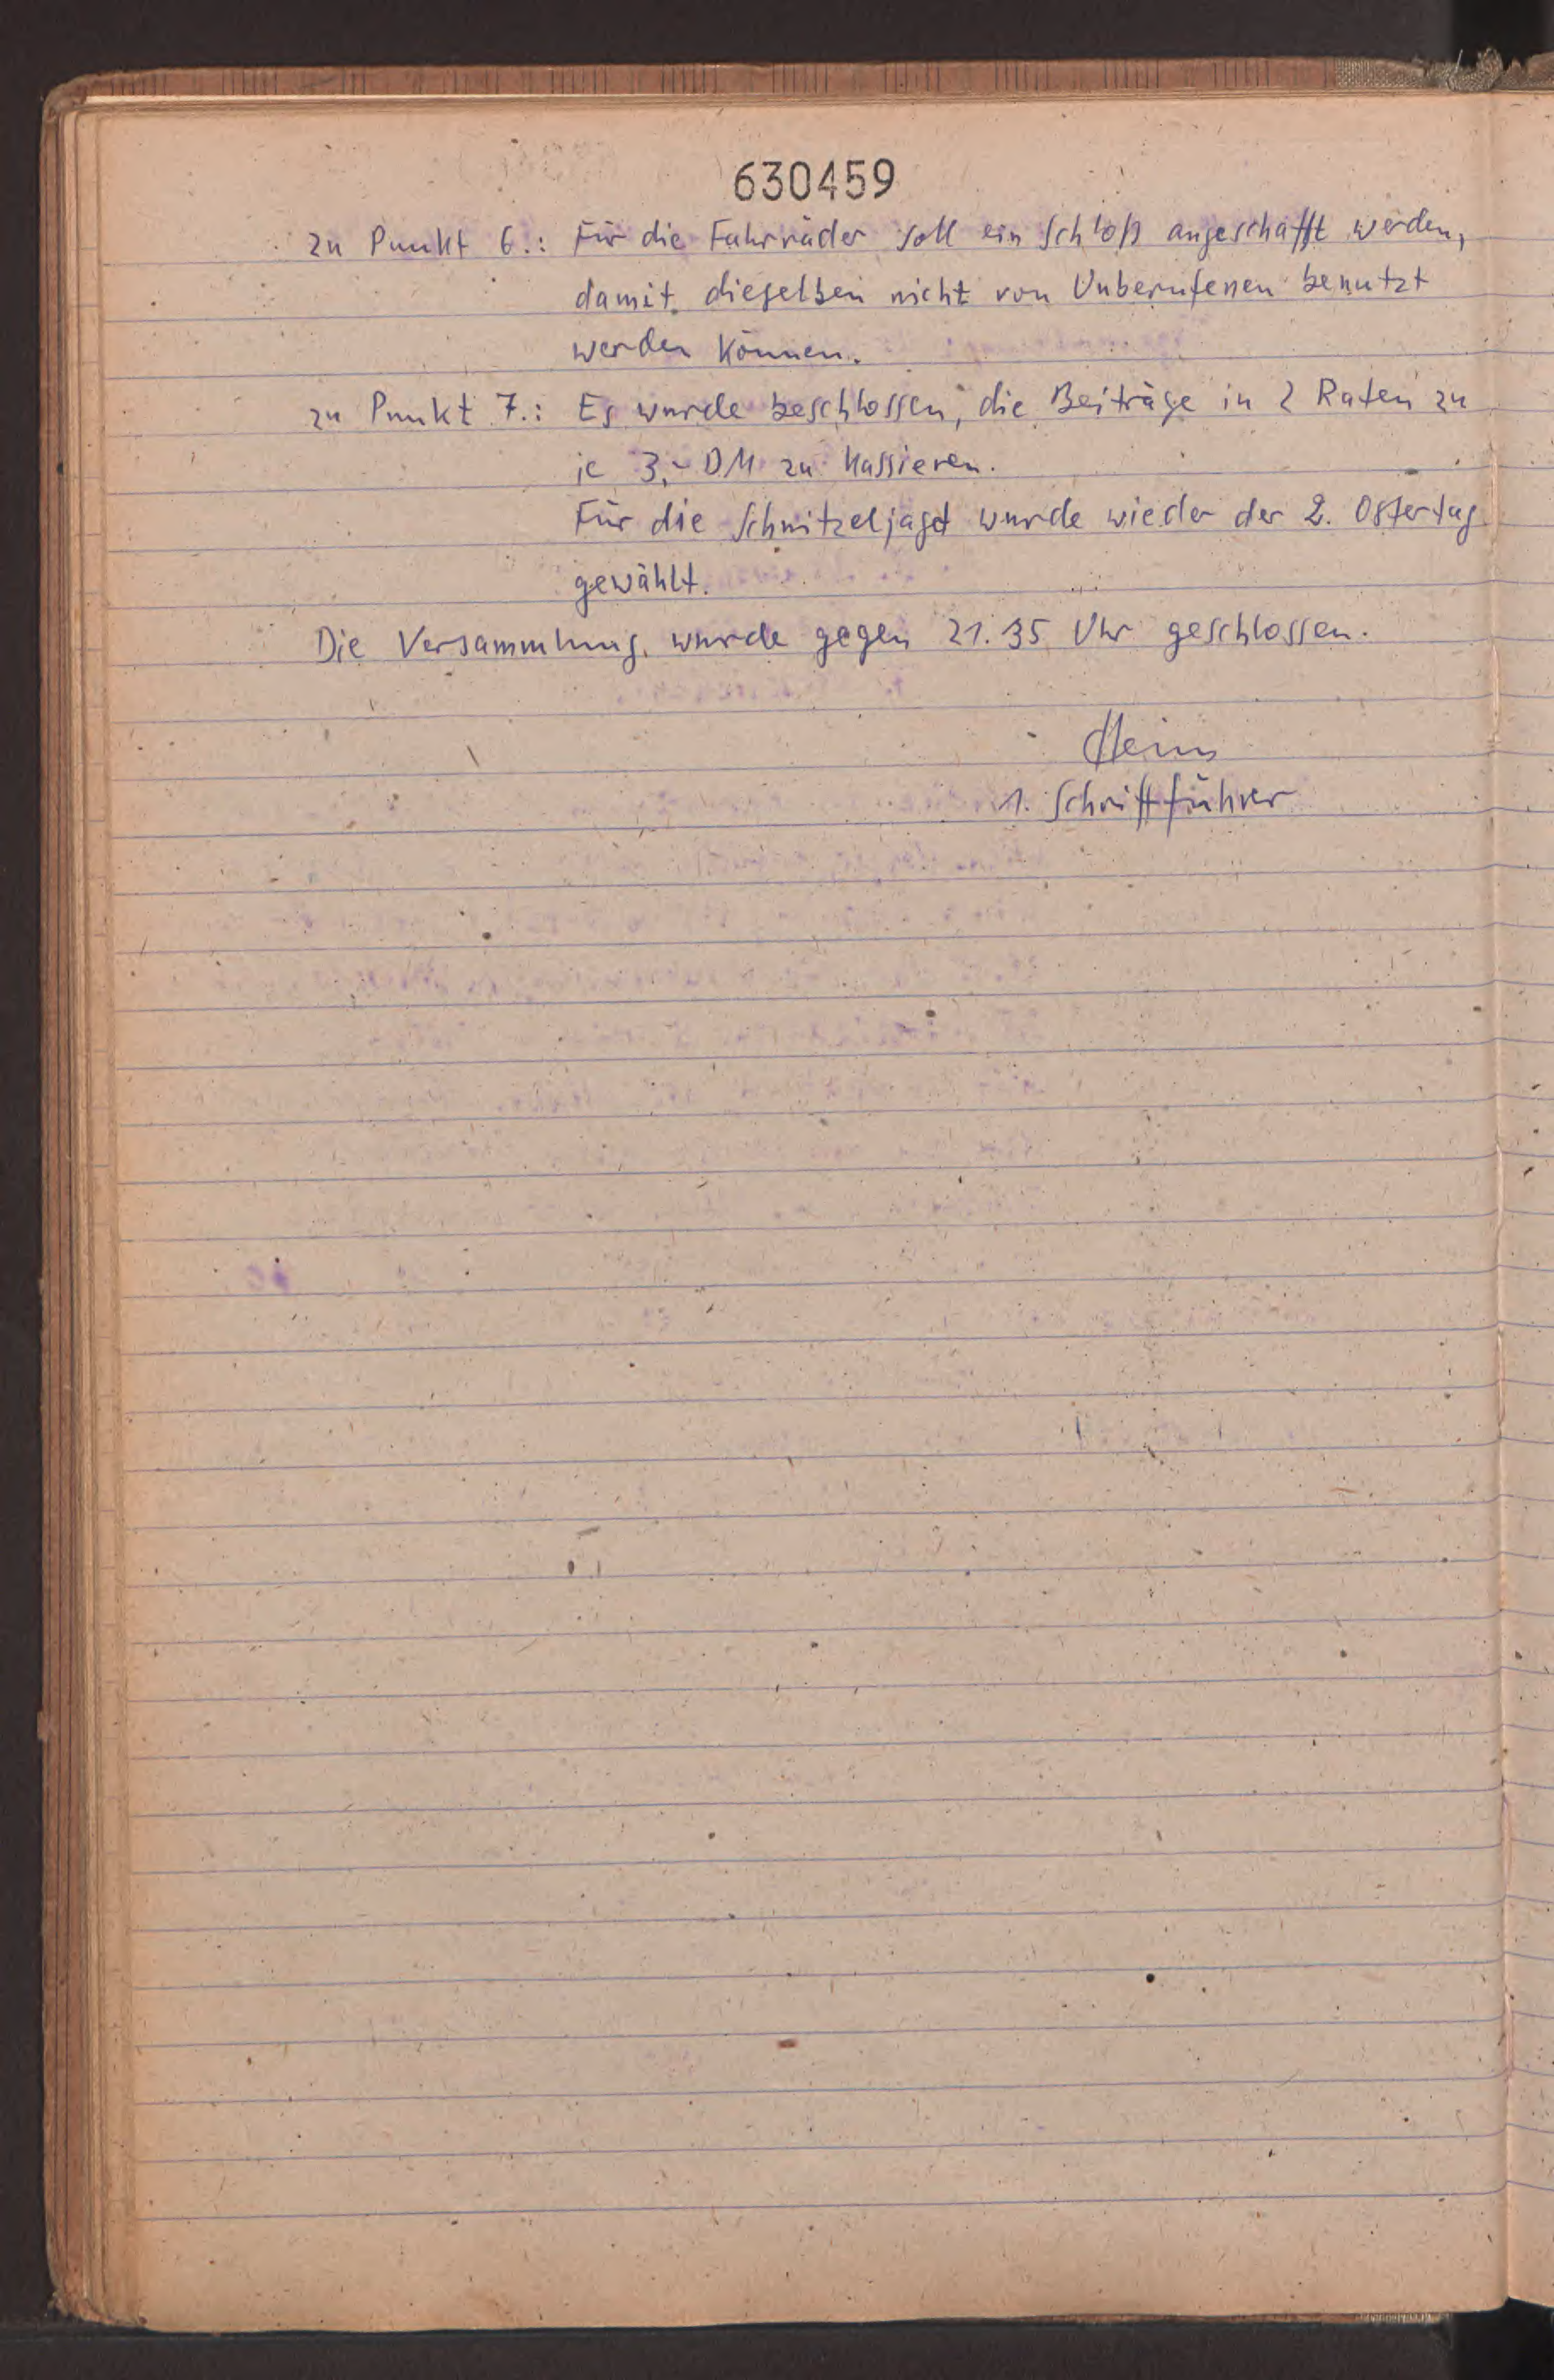 630459
zu Punkt 6.: Für die Fahrräder soll ein Schloß angeschafft werden,
damit dieselben nicht von Unberufenen benutzt
werden können.
zu Punkt 7.: Es wurde beschlossen, die Beiträge in 2 Raten zu
je 3,- DM zu kassieren.
Für die Schnitzeljagd wurde wieder der 2. Ostertag
gewählt.
Die Versammlung wurde gegen 21.35 Uhr geschlossen.
1. Schriftführer